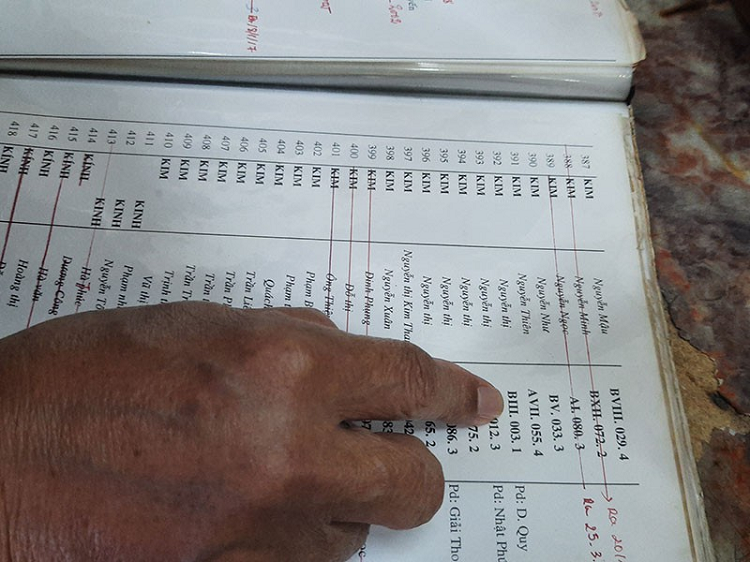 387 KIM Nguyễn Mậu BVIII. 029. 4
388 KIM Nguyễn Minh BXII. 072. 2 Ra 20/
389 KIM Nguyễn Ngọc AI. 080. 3 Ra 25. 3.
390 KIM Nguyễn Như BV. 033. 3
391 KIM Nguyễn Thiên AVII. 055. 4
392 KIM Nguyễn thị BIII. 003. 1 Pd: D. Quy
393 KIM Nguyễn thị 012. 3 Pd: Nhật Phú
394 KIM Nguyễn thị 75. 2
395 KIM Nguyễn thị 086. 3 Pd: Giải Tho
396 KIM Nguyễn thị 65. 2
397 KIM Nguyễn thị Kim Tha 42
398 KIM Nguyễn Xuân 83
399 KIM Đinh Phụng 07
400 KIM Đỗ thị
401 KIM Ông Thiệ
402 KIM Phạm B
403 KIM Phạm
404 KIM Quác
405 KIM Trần Lệ
406 KIM Trần P
407 KIM Trần
408 KIM Trần
409 KIM Trần Tr
410 KIM Trịnh
411 KINH Vũ thị
412 KINH Phạm nh
413 KINH Nguyễn Tố
414 KÍNH Hà phúc
415 KÍNH Dương Công
416 KÍNH Hà văn
417 KÍNH Hoàng thị
418 KÍNH